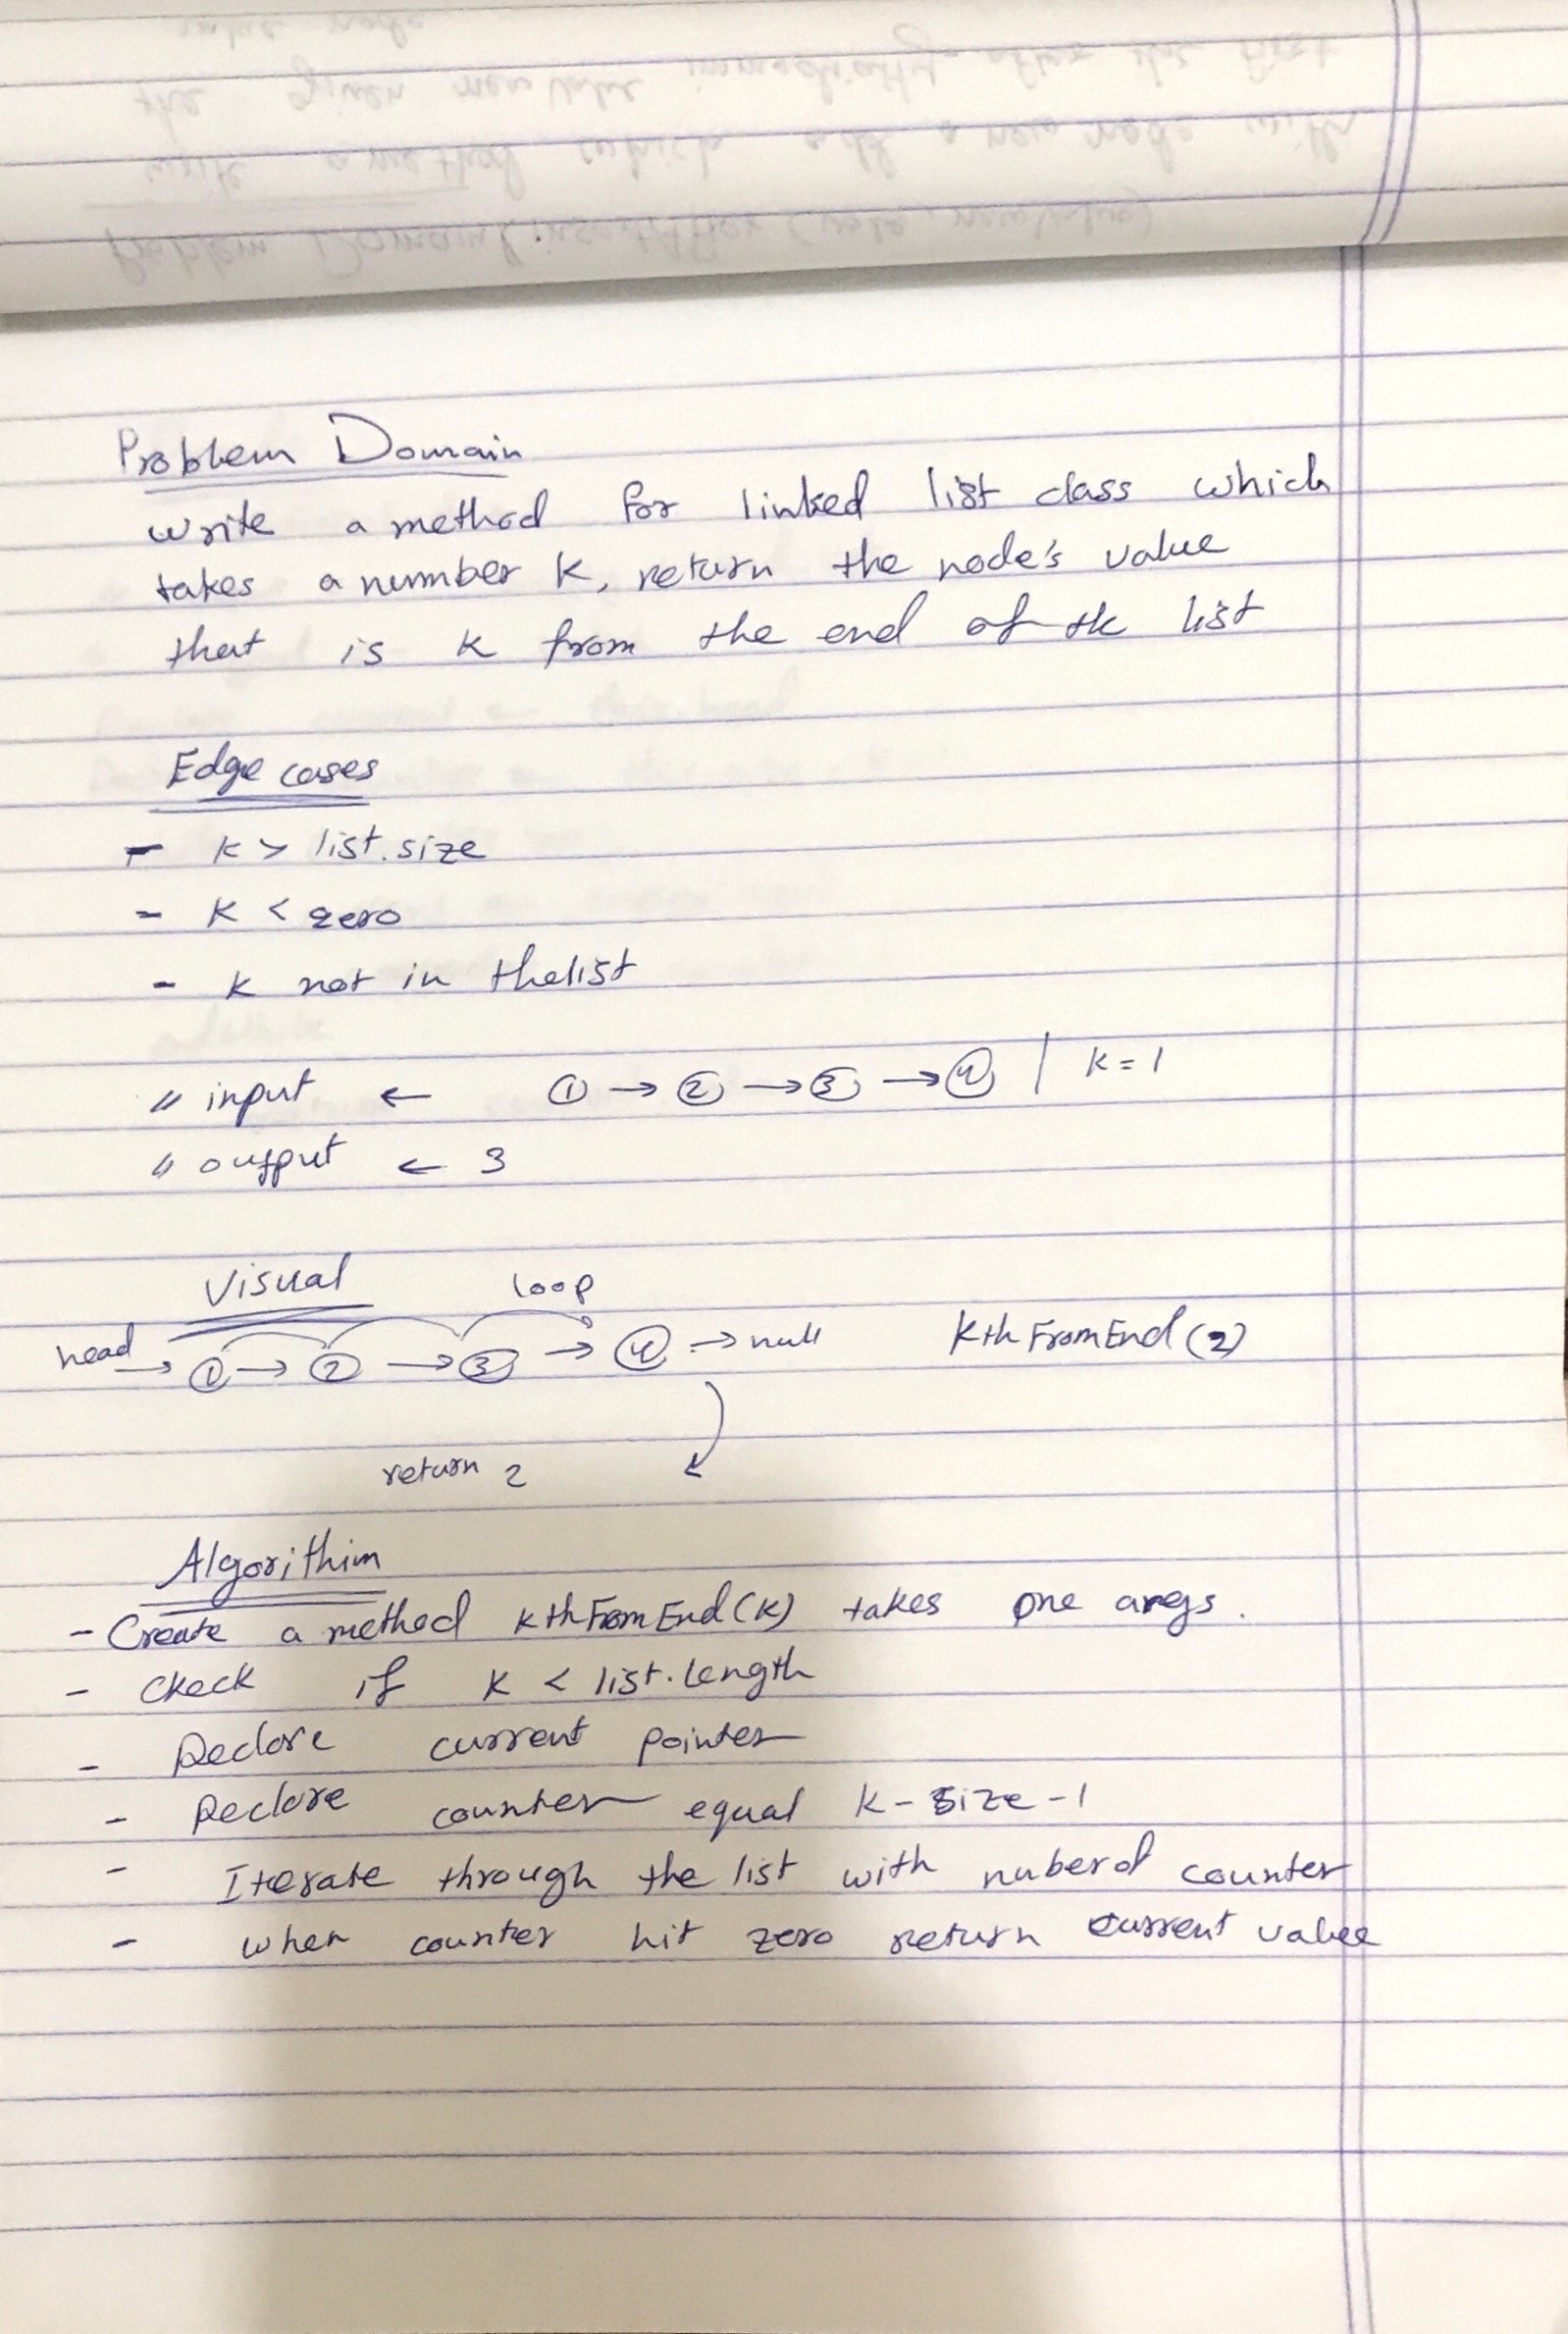 Problem Domain
write a method for linked list class which
takes a number K, return the node's value
that is K from the end of the list
Edge cases
- K > list.size
- K < zero
- K not in thelist
" input ← ① → ② → ③ → ④ | K = 1
" output ← 3
Visual loop
head → ① → ② → ③ → ④ → null KthFromEnd(2)
return 2
Algorithim
- Create a method KthFromEnd(K) takes one args.
- check if K < list.length
- Declare current pointer
- Declare counter equal K - size - 1
- Iterate through the list with nuberof counter
- when counter hit zero return current value